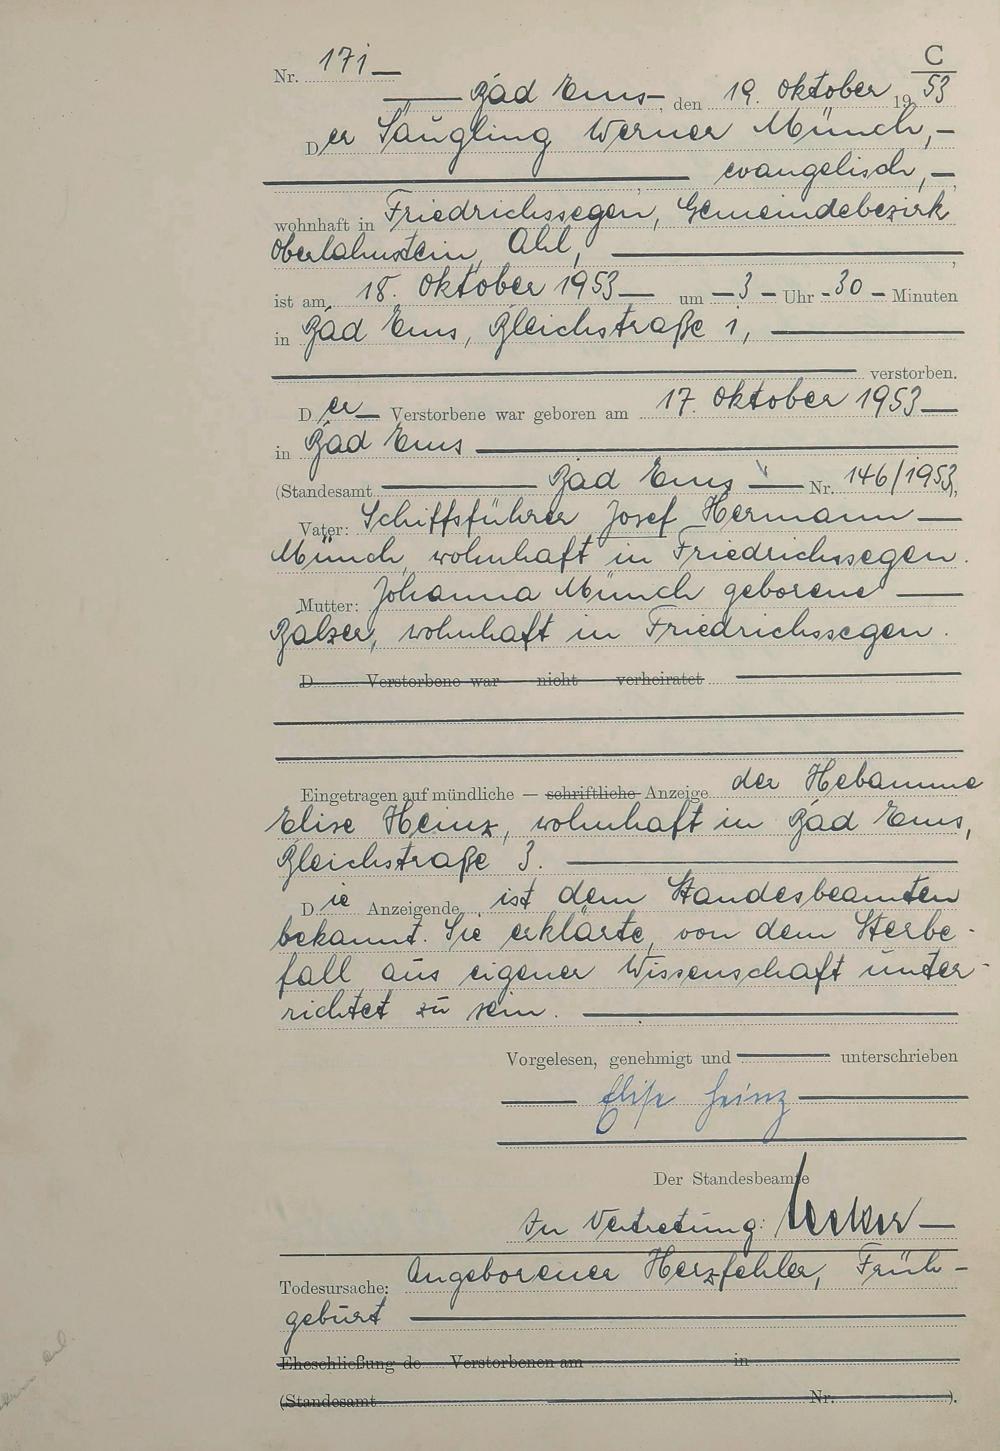 C
Nr. 171
Bad Ems, den 19. Oktober 1953
Der Säugling Werner Münch,
evangelisch,
wohnhaft in Friedrichssegen, Gemeindebezirk
Oberlahnstein, Ahl,
ist am 18. Oktober 1953 um 3 Uhr 30 Minuten
in Bad Ems, Bleichstraße 1,
verstorben.
Der Verstorbene war geboren am 17. Oktober 1953
in Bad Ems
(Standesamt Bad Ems Nr. 146/1953)
Vater: Schiffsführer Josef Hermann
Münch, wohnhaft in Friedrichssegen.
Mutter: Johanna Münch geborene
Balzer, wohnhaft in Friedrichssegen.
D Verstorbene war nicht verheiratet
Eingetragen auf mündliche — schriftliche Anzeige der Hebamme
Elise Heinz, wohnhaft in Bad Ems,
Bleichstraße 3.
Die Anzeigende ist dem Standesbeamten
bekannt. Sie erklärte, von dem Sterbe-
fall aus eigener Wissenschaft unter-
richtet zu sein.
Vorgelesen, genehmigt und unterschrieben
Elise Heinz
Der Standesbeamte
In Vertretung:
Todesursache: Angeborener Herzfehler, Früh-
geburt
Eheschließung de Verstorbenen am in
(Standesamt Nr. ).